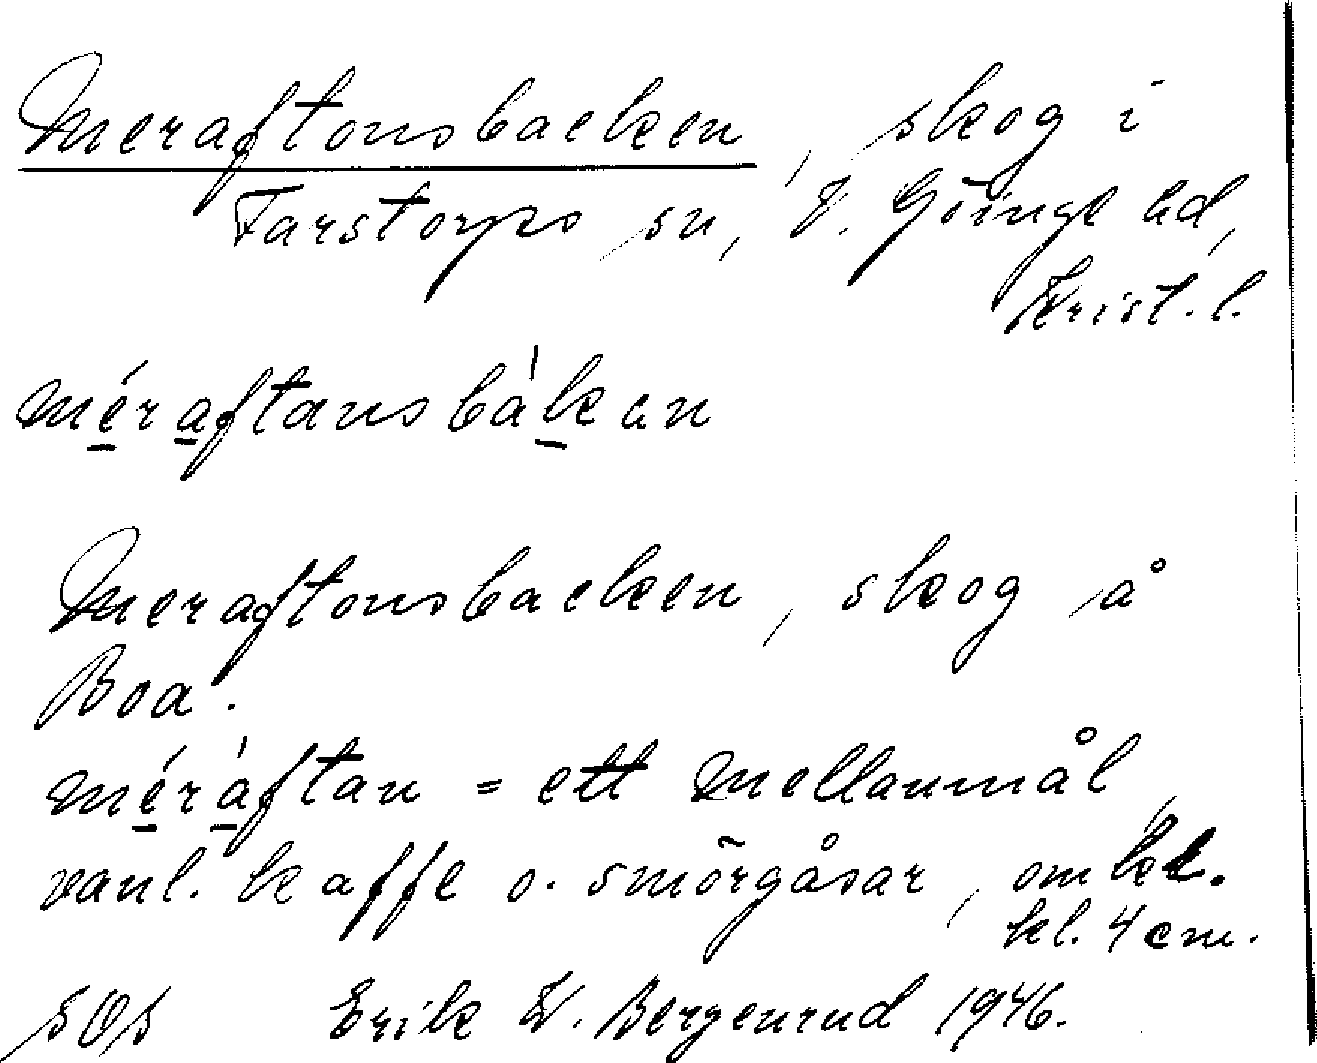 Meraftonsbacken, skog i
Farstorps sn, V. Göinge hd,
Krist. l.
méraftansbàkan
Meraftonsbacken, skog å
Boa.
méràftan = ett mellanmål,
vanl. kaffe o. smörgåsar, omkr.
kl. 4 em.
SOS Erik W. Bergenrud 1946.